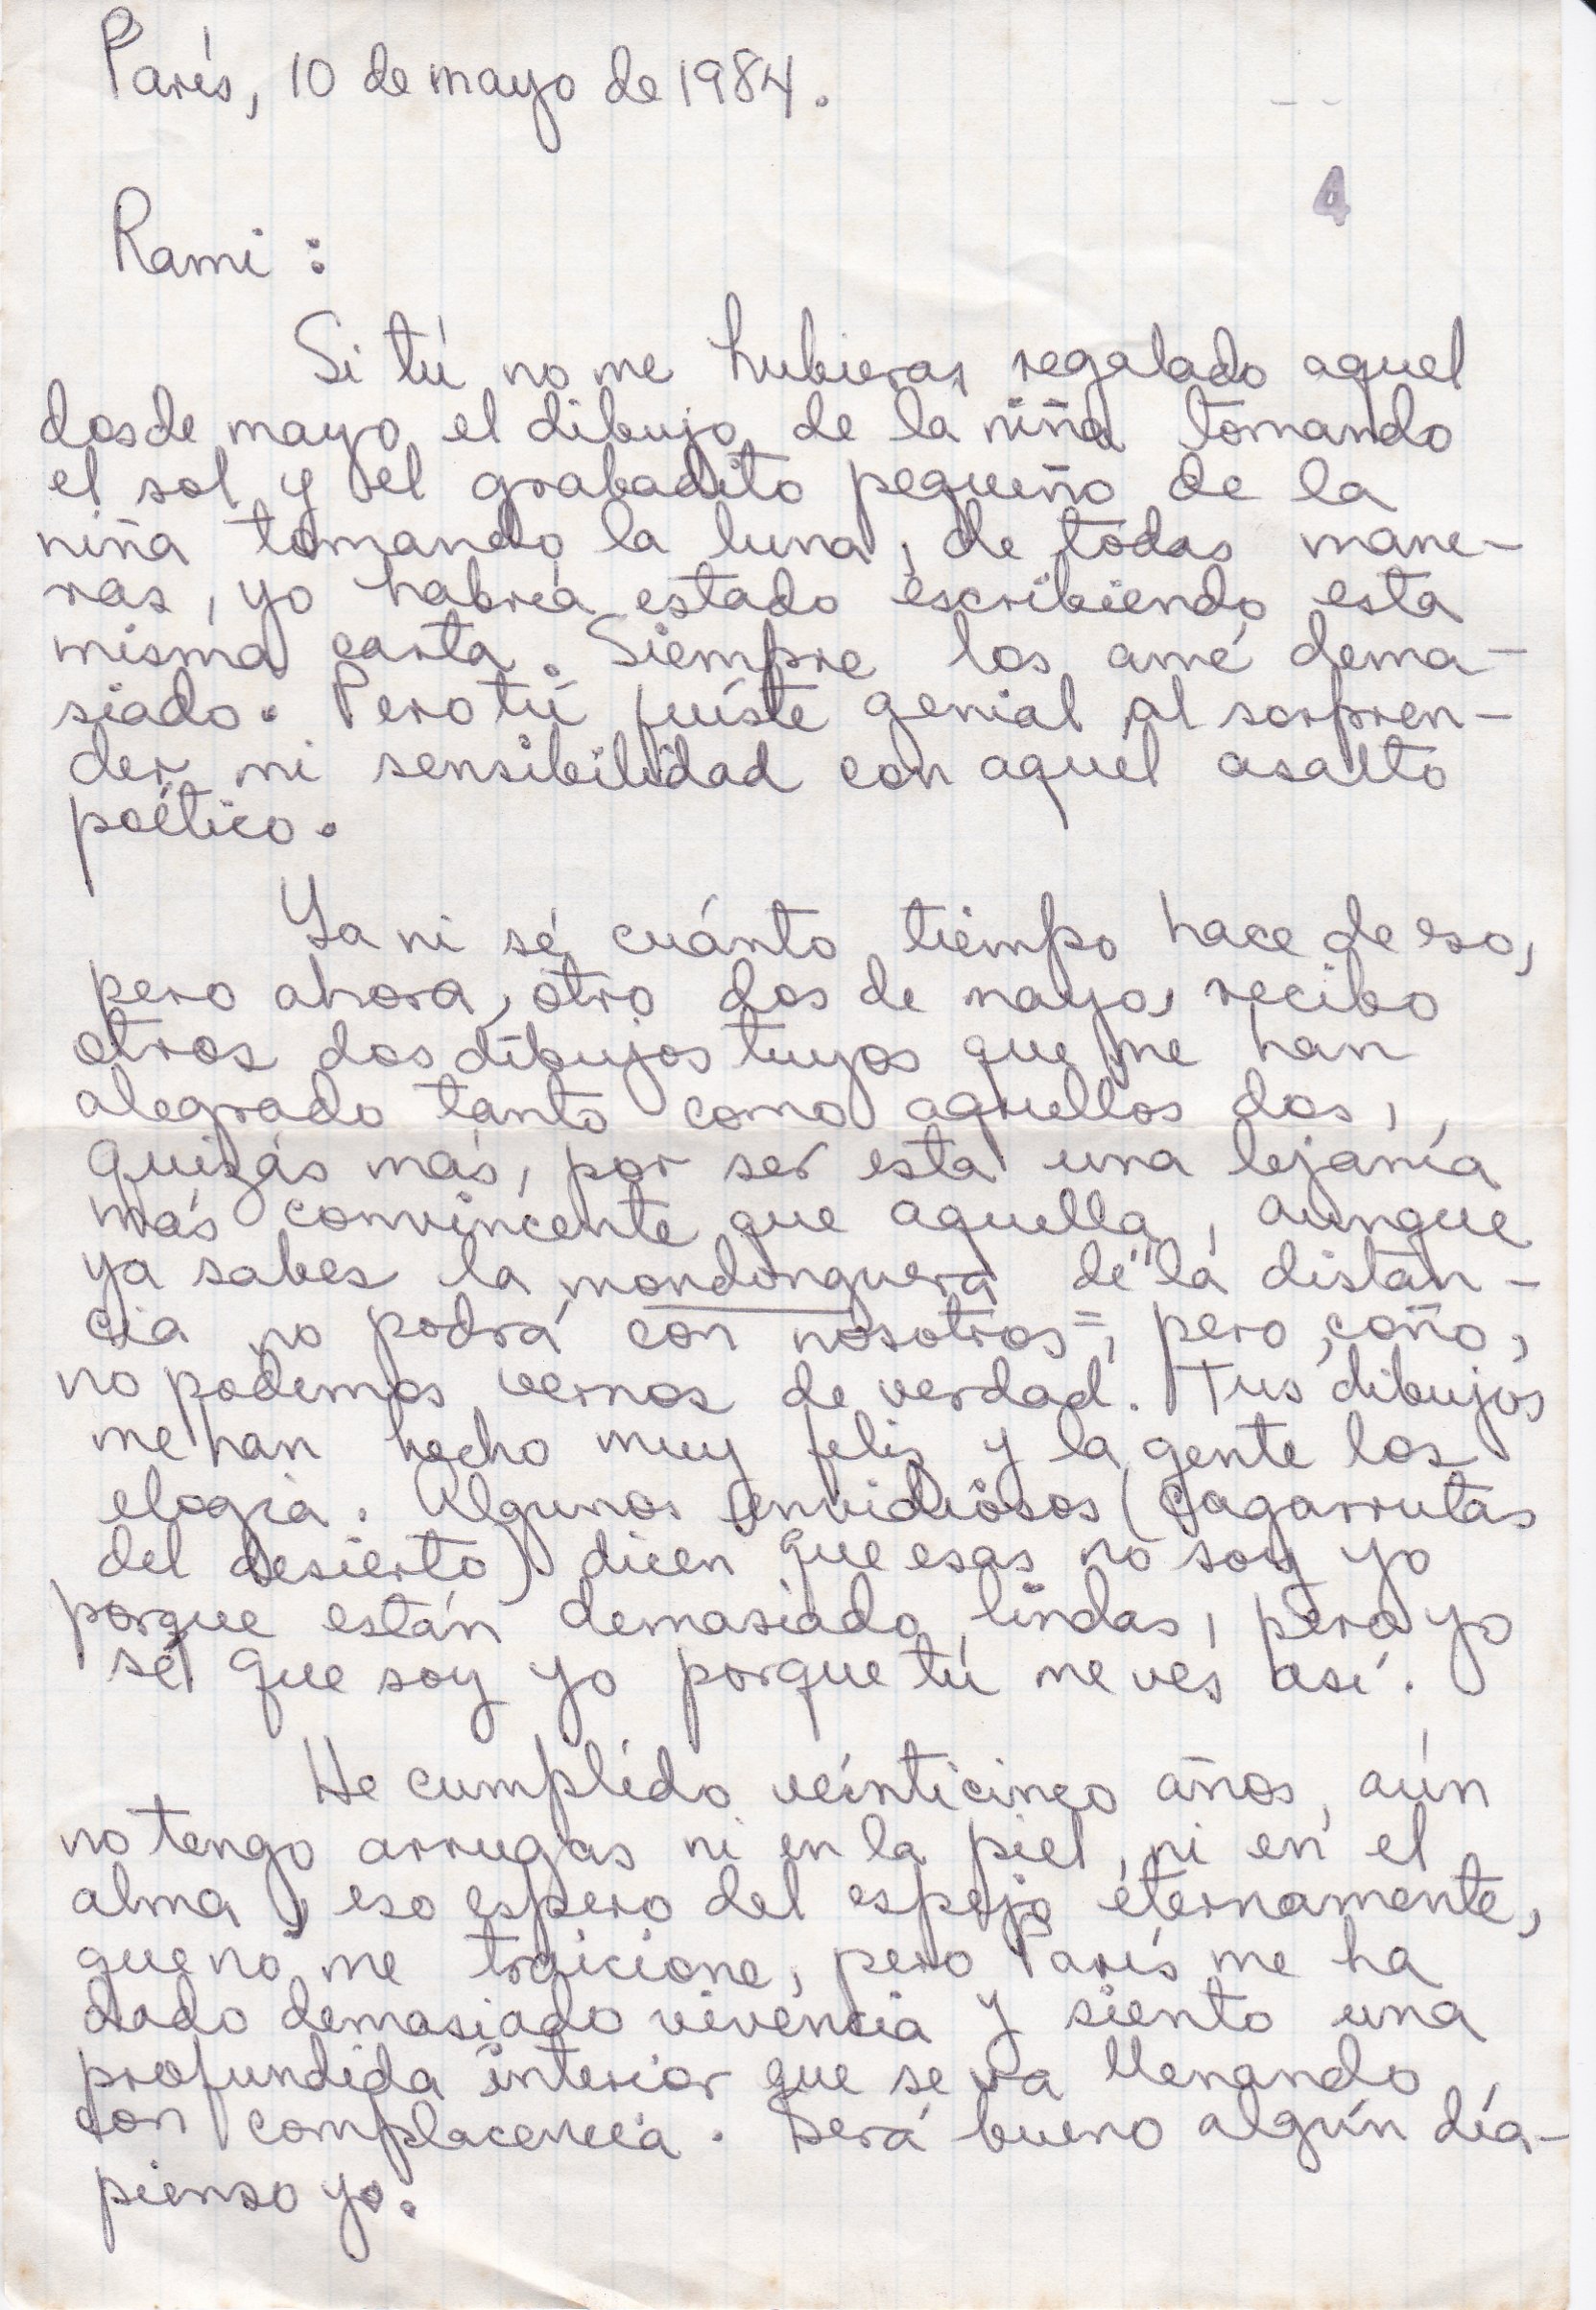 París, 10 de mayo de 1984.
4
Rami :
Si tú no me hubieras regalado aquel
dos de mayo el dibujo de la niña tomando
el sol y el grabadito pequeño de la
niña tomando la luna, de todas mane-
ras, yo habría estado escribiendo esta
misma carta. Siempre los amé dema-
siado. Pero tú fuíste genial al sorpren-
der mi sensibilidad con aquel asalto
poético.
Ya ni sé cuánto tiempo hace de eso,
pero ahora, otro dos de mayo, recibo
otros dos dibujos tuyos que me han
alegrado tanto como aquellos dos,
quizás más, por ser esta una lejanía
más convincente que aquella, aunque
ya sabes la mondonguera de "la distan-
cia no podrá con nosotros", pero, coño,
no podemos vernos de verdad. Tus dibujos
me han hecho muy feliz y la gente los
elogia. Algunos envidiosos (cagarrutas
del desierto) dicen que esas no soy yo
porque están demasiado lindas, pero yo
sé que soy yo porque tú me ves así.
He cumplido veinticinco años, aún
no tengo arrugas ni en la piel, ni en el
alma, eso espero del espejo éternamente,
que no me traicione, pero París me ha
dado demasiado vivencia y siento una
profundida interior que se va llenando
con complacencia. Será bueno algún día-
pienso yo.